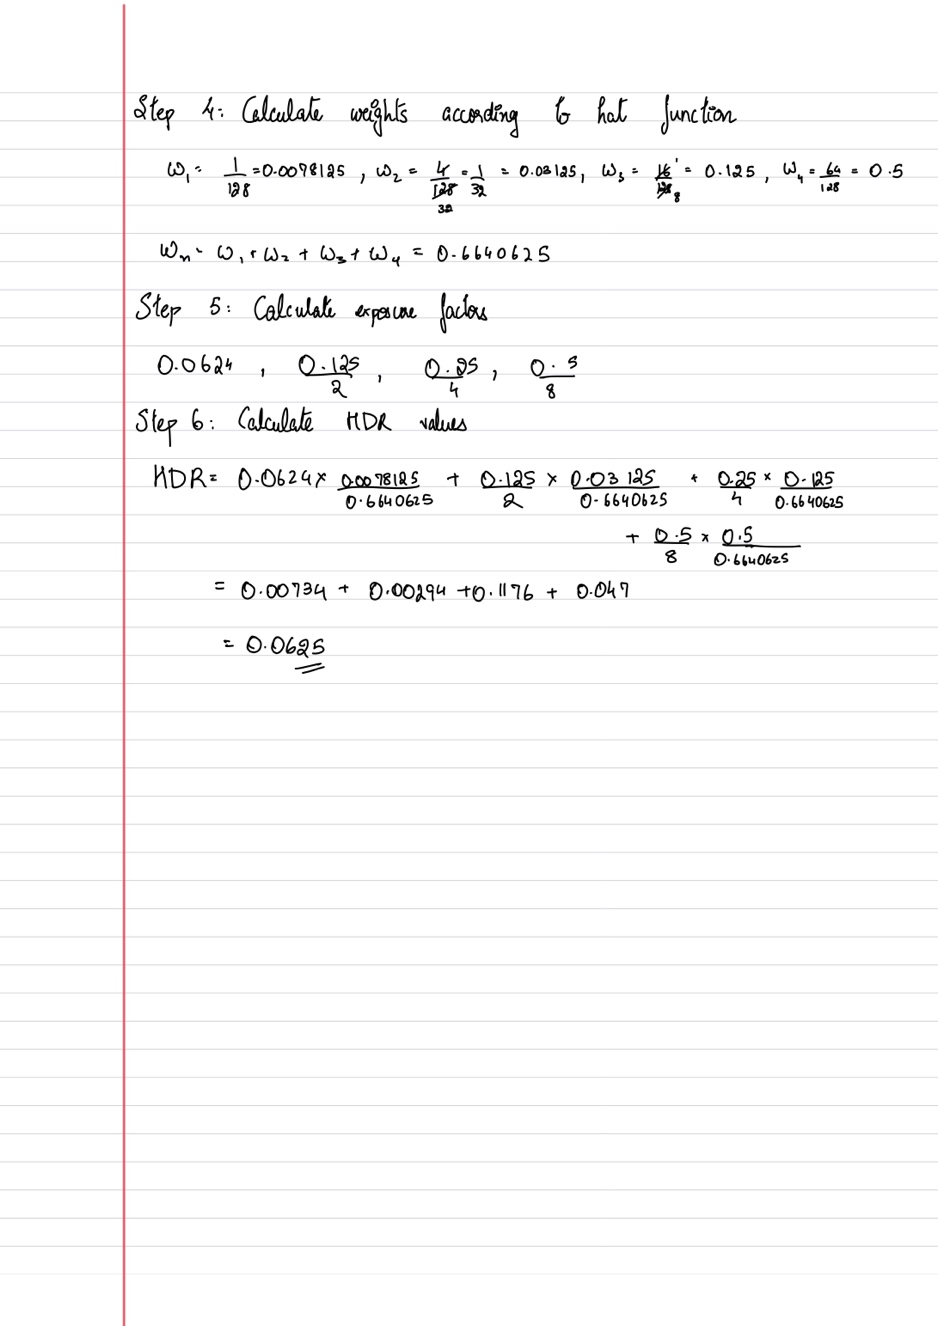 Step 4: Calculate weights according to hat function
ω₁ = 1/128 = 0.0078125, ω₂ = 4/128 32 = 1/32 = 0.03125, ω₃ = 16/128 1/8 = 0.125, ω₄ = 64/128 = 0.5
ωₙ = ω₁ + ω₂ + ω₃ + ω₄ = 0.6640625
Step 5: Calculate exposure factors
0.0624, 0.125/2, 0.25/4, 0.5/8
Step 6: Calculate HDR values
HDR = 0.0624 × 0.0078125/0.6640625 + 0.125/2 × 0.03125/0.6640625 + 0.25/4 × 0.125/0.6640625
+ 0.5/8 × 0.5/0.6640625
= 0.00734 + 0.00294 + 0.1176 + 0.047
= 0.0625